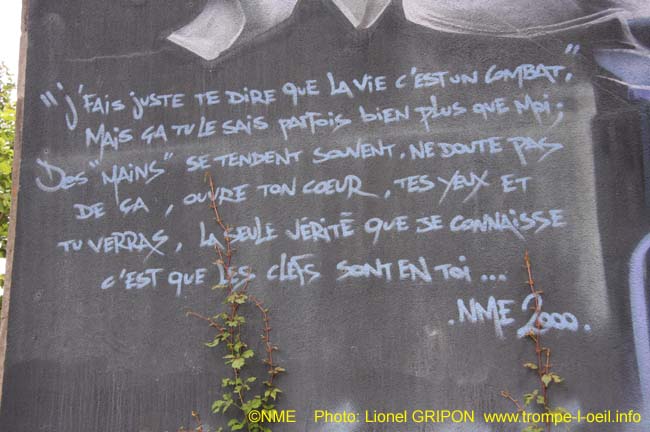 "j'FAis juste te dire que la vie c'est un combat,"
Mais ça tu le sais parfois bien plus que moi ;
Des "MAINS" se tendent souvent, ne doute pas
de ça, ouvre ton cœur, tes yeux et
tu verras, la seule vérité que je connaisse
c'est que les clefs sont en toi ...
.NME 2000.
©NME Photo: Lionel GRIPON www.trompe-l-oeil.info